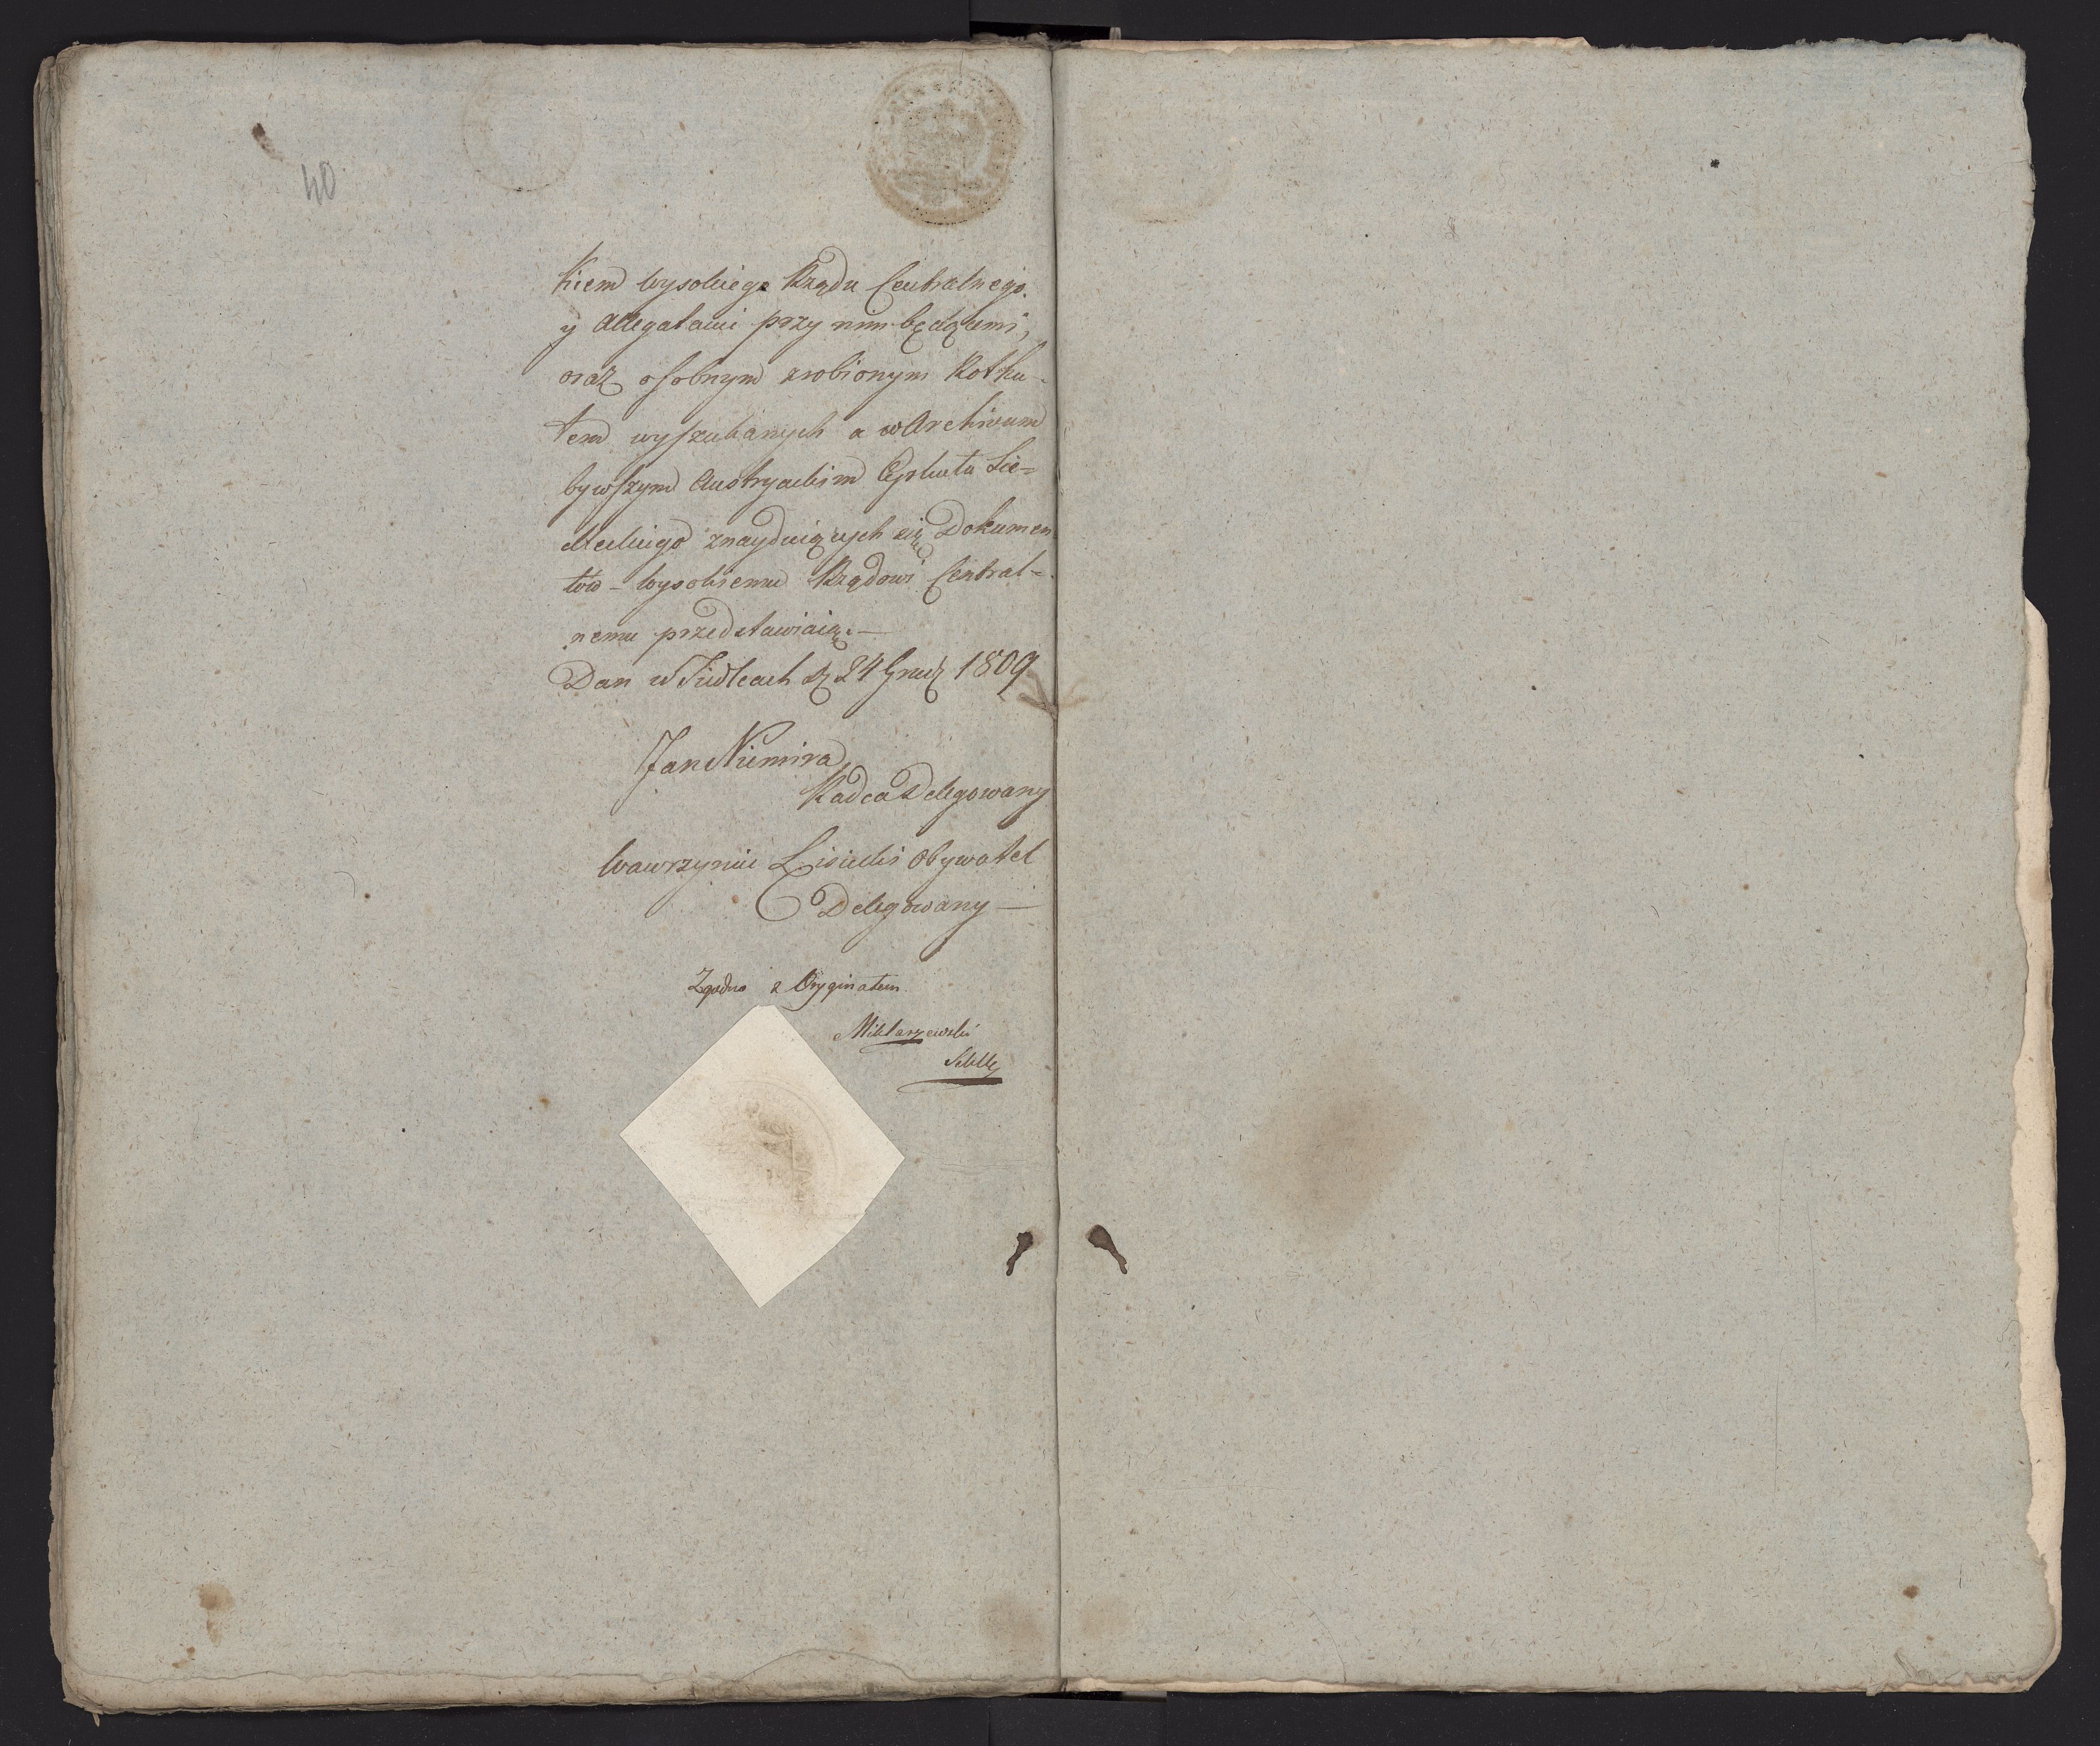 40
kiem Wysokiego Rządu Centralnego
y Allegatami przy nim będącemi,
oraz osobnym zrobionym Rothu-
łem wyszukanych a w Archiwum
bywszym Austryackim Cyrkułu Sie-
dleckiego znayduiących się Dokumen
tów - Wysokiemu Rządowi Central-
nemu przedstawiaią. —
Dan w Siedlcach d. 24 Grud. 1809
Jan Niemira
Radca Delegowany
Wawrzyniec Lisiecki Obywatel
Delegowany —
Zgodno z Oryginałem
Miklaszewski